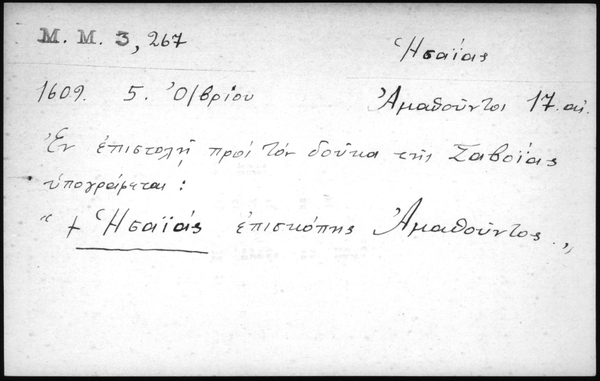 M. M. 3, 267
Ἡσαΐας
1609. 5. Ὀ/βρίου
Ἀμαθοῦντος 17. αἰ.
Ἐν ἐπιστολῇ πρὸς τὸν δοῦκα τῆς Σαβοΐας
ὑπογράφεται :
“ + Ἡσαΐας ἐπισκόπης Ἀμαθοῦντος „